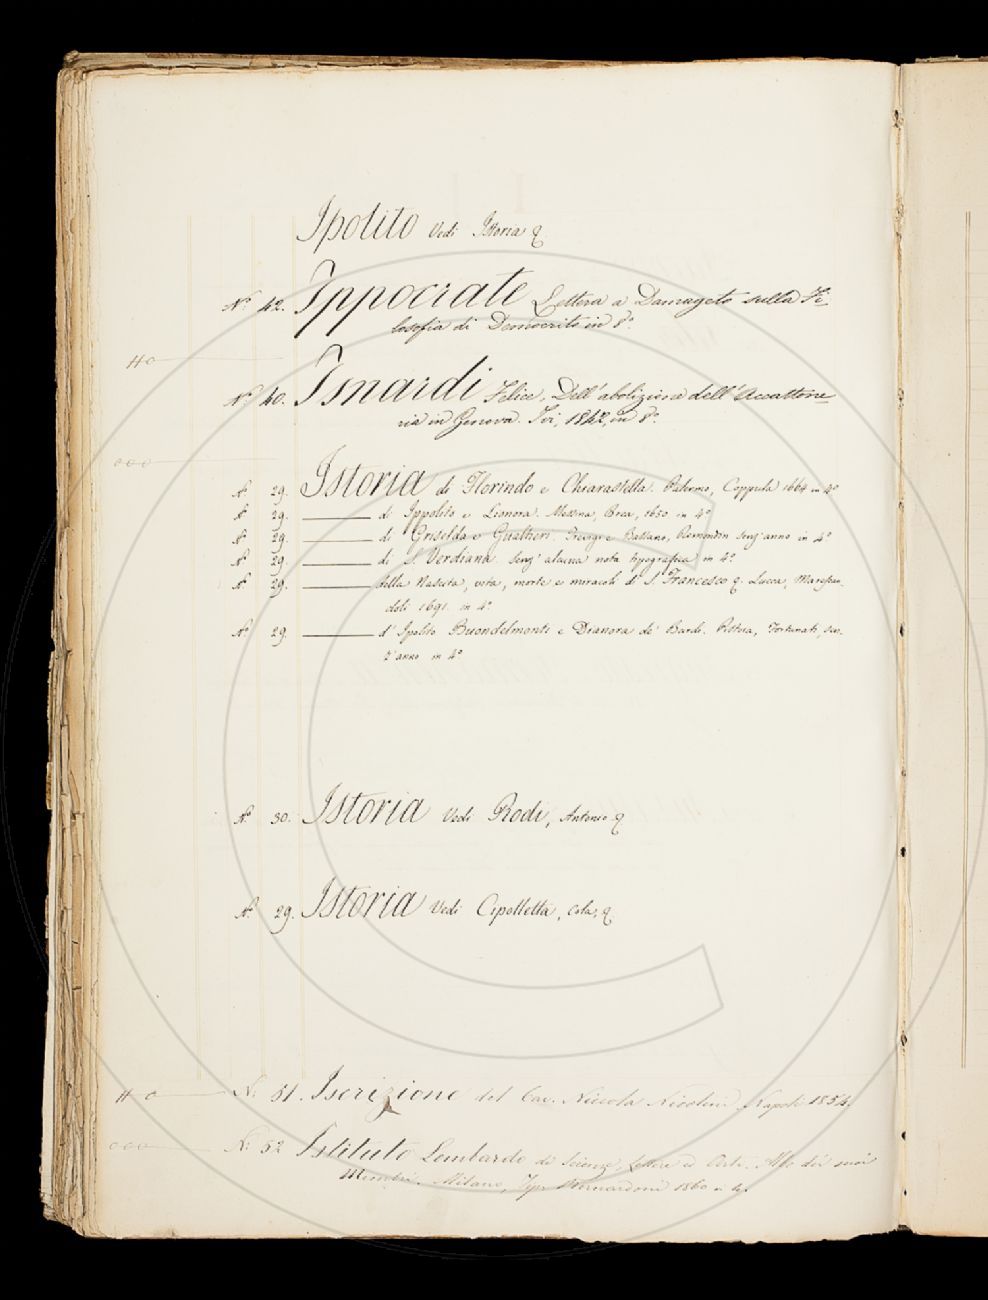 Ipolito Vedi Istoria q.
Nº 42. Ippocrate Lettera a Damageto sulla Fi=
losofia di Democrito in 8º.
Nº 40. Isnardi Felice, Dell'abolizione dell'Accattone=
ria in Genova. Ivi, 1842, in 8º.
Nº 29. Istoria di Florindo e Chiarastella. Palermo, Coppula 1664 in 4º
Nº 29. di Ippolito e Lionora. Messina, Brea, 1650 in 4º
Nº 29. di Griselda e Gualtieri. Trevigi e Bassano, Remondin senz'anno in 4º
Nº 29. di S. Verdiana. senz'alcuna nota tipografica in 4º
Nº 29. della Nascita, vita, morte e miracoli di S. Francesco q. Lucca, Marescan
doli 1691. in 4º
Nº 29. d'Ipolito Buondelmonti e Dianora de' Bardi. Pistoia, Fortunati, sen
z'anno in 4º
Nº 30. Istoria Vedi Rodi, Antonio q
Nº 29. Istoria Vedi Cipolletta, Cola, q.
Nº 51. Iscrizione del Cav. Niccola Nicolini. Napoli 1854.
Nº 52 Istituto Lombardo di Scienze, Lettere ed Arti. dei suoi
Membri. Milano, Tip. Bernardoni 1860 in 4.